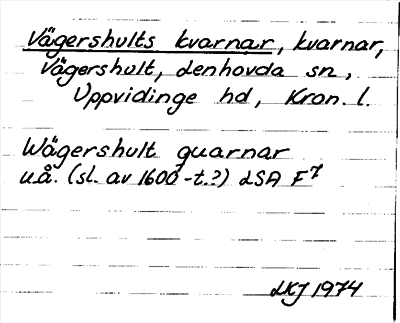 Vägershults kvarnar, kvarnar,
Vägershult, Lenhovda sn,
Uppvidinge hd, Kron. l.
Wägershult quarnar
u.å. (sl. av 1600-t.?) LSA F7
LKJ 1974